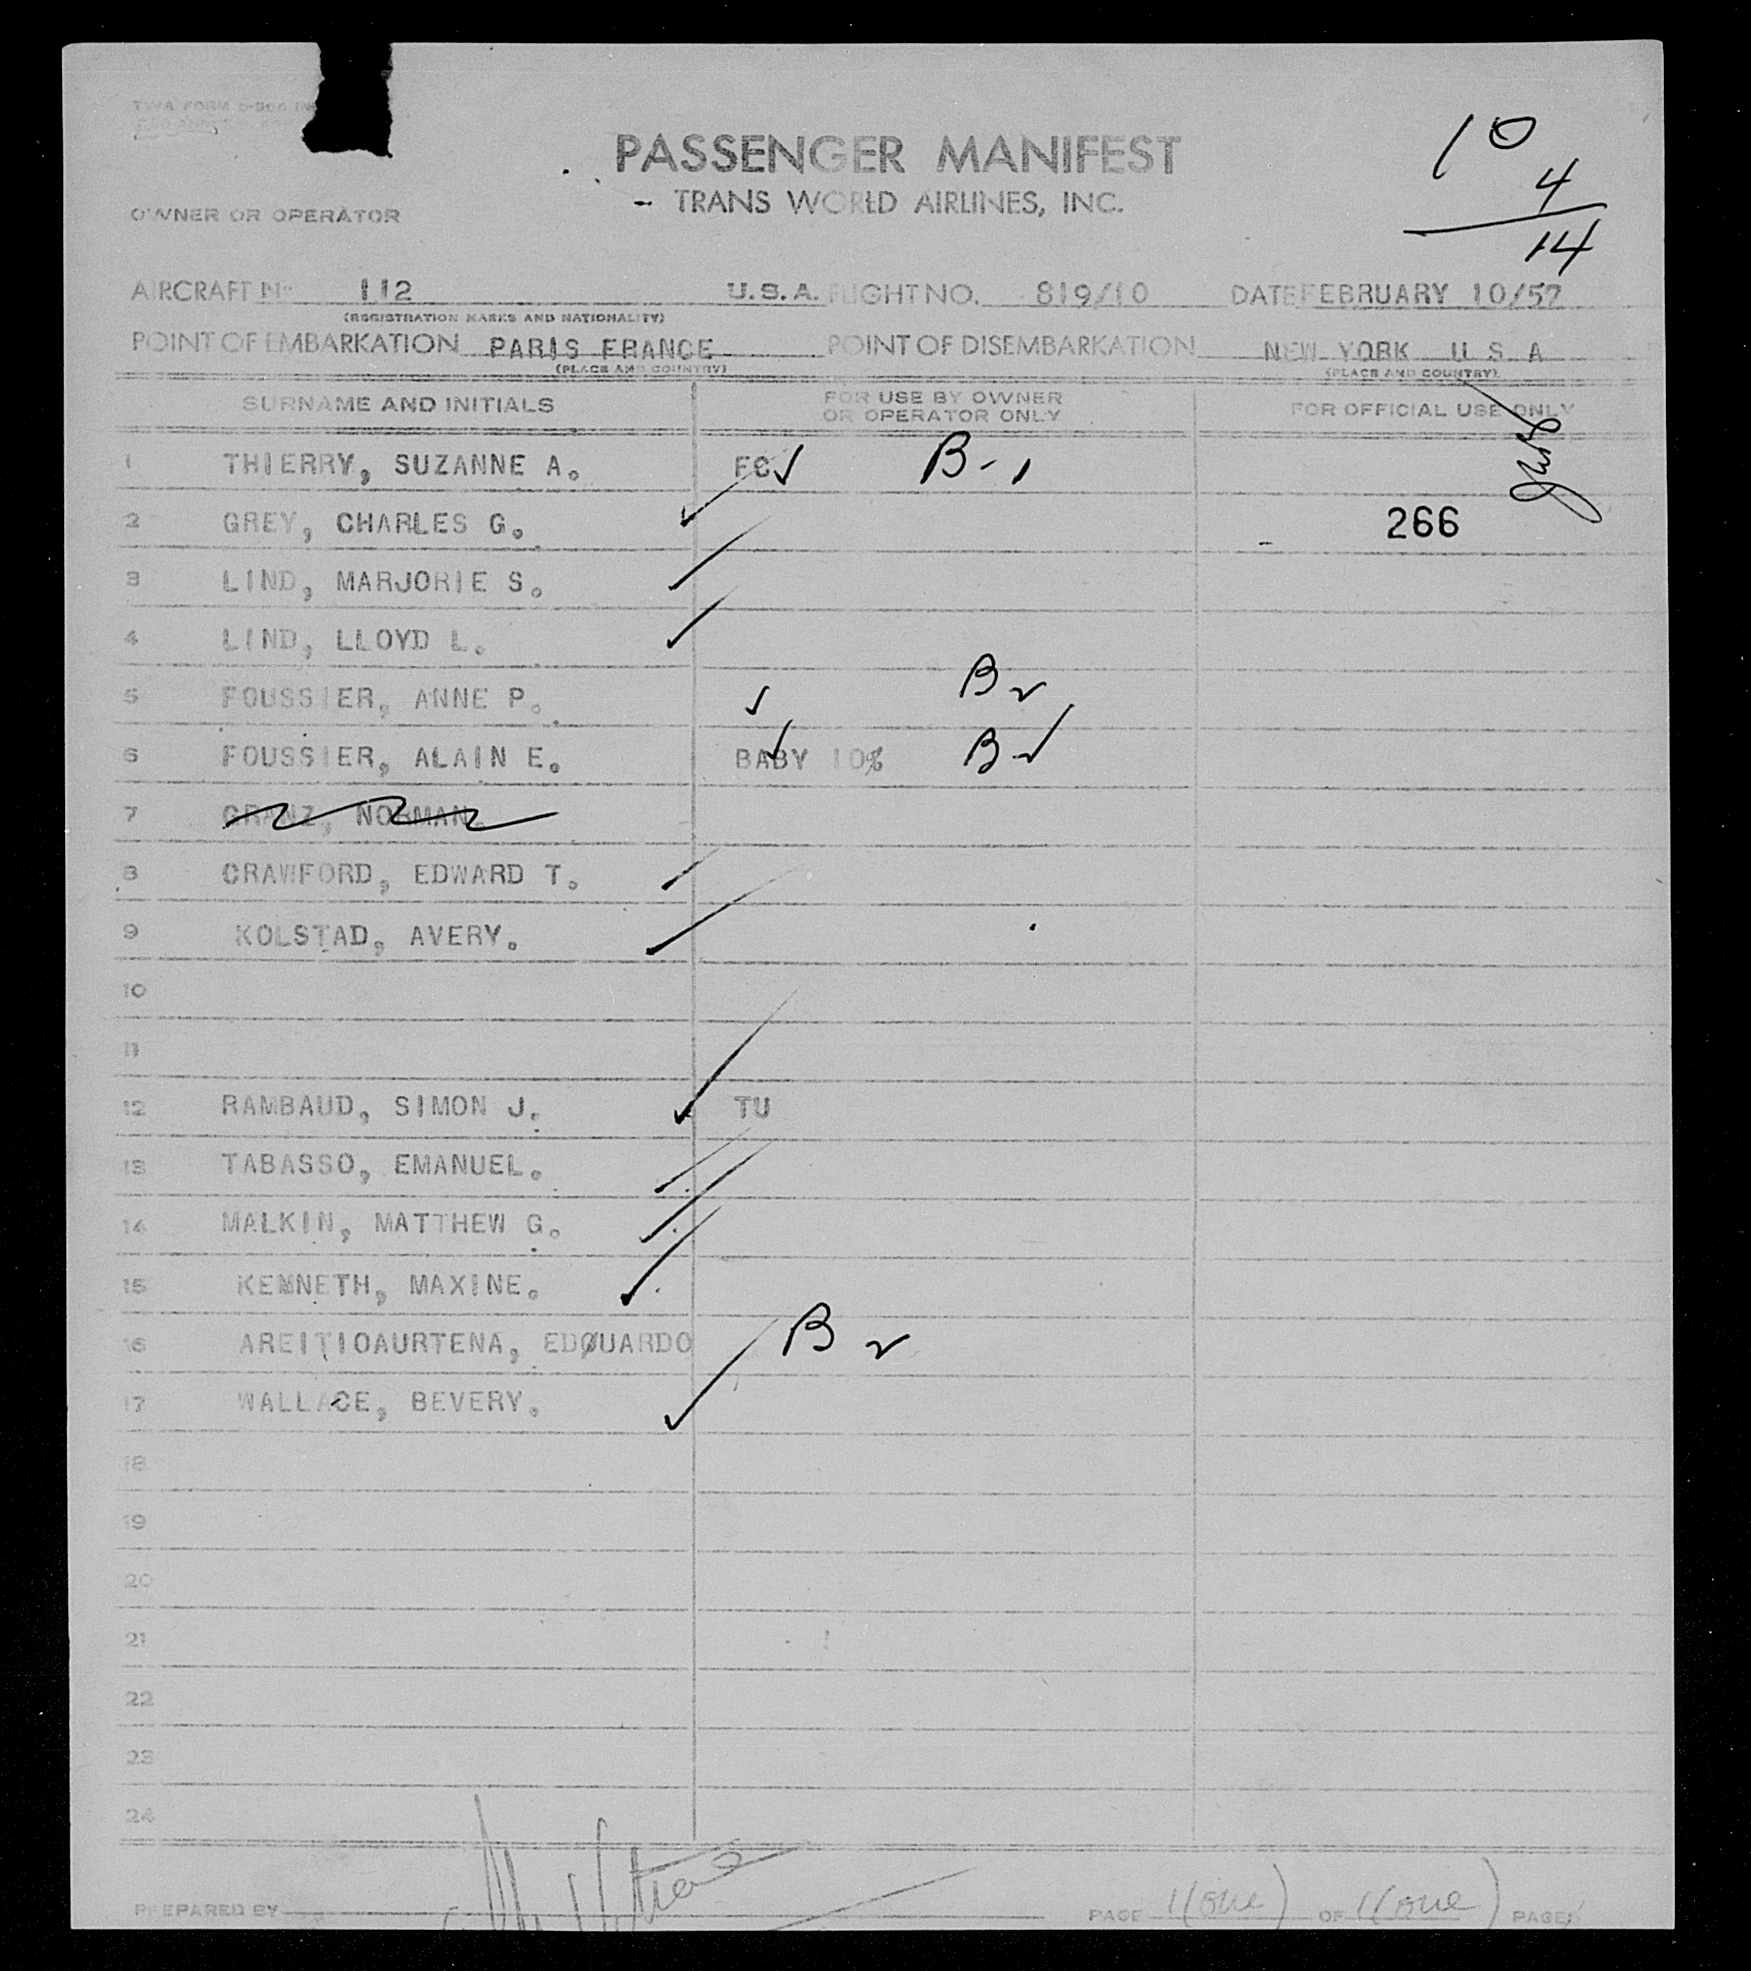 TWA FORM
PASSENGER MANIFEST
10
4
14
TRANS WORLD AIRLINES, INC.
OWNER OR OPERATOR
AIRCRAFT No 112 U.S.A. FLIGHT NO. 819/10 DATE FEBRUARY 10/57
(REGISTRATION MARKS AND NATIONALITY)
POINT OF EMBARKATION PARIS FRANCE POINT OF DISEMBARKATION NEW YORK U S A
(PLACE AND COUNTRY) (PLACE AND COUNTRY)
SURNAME AND INITIALS FOR USE BY OWNER OR OPERATOR ONLY FOR OFFICIAL USE ONLY
1 THIERRY, SUZANNE A. FC B-1
2 GREY, CHARLES G. 266
3 LIND, MARJORIE S.
4 LIND, LLOYD L.
5 FOUSSIER, ANNE P. B
6 FOUSSIER, ALAIN E. BABY 10% B
7 GRANZ, NORMAN.
8 CRAWFORD, EDWARD T.
9 KOLSTAD, AVERY.
10
11
12 RAMBAUD, SIMON J. TU
13 TABASSO, EMANUEL.
14 MALKIN, MATTHEW G.
15 KENNETH, MAXINE.
16 AREITIOAURTENA, EDOUARDO B
17 WALLACE, BEVERY.
18
19
20
21
22
23
24
PREPARED BY PAGE 1(one) OF 1(one) PAGES